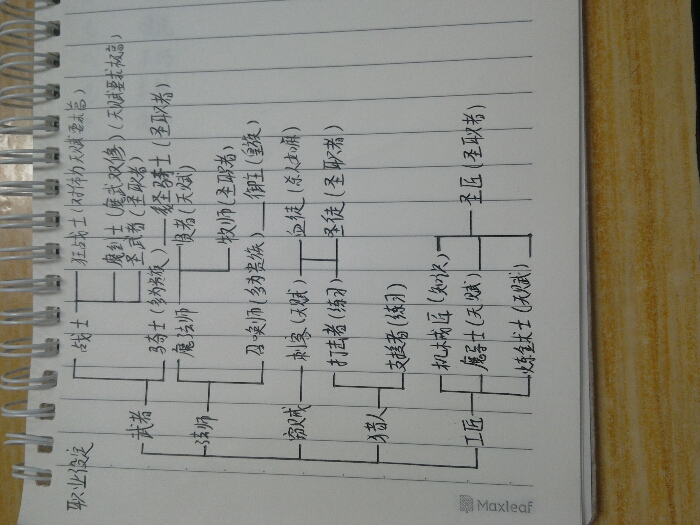 职业设定
武者
战士
狂战士(对体力天赋要求高)
魔剑士(魔武双修)(天赋要求极高)
圣武者(圣职者)
骑士(多为贵族)
圣骑士(圣职者)
法师
魔法师
贤者(天赋)
牧师(圣职者)
召唤师(多为贵族)
御主(皇族)
窃贼
刺客(天赋)
血徒(杀人如麻)
圣徒(圣职者)
猎人
打击者(练习)
支援者(练习)
工匠
机械匠(知识)
魔导士(天赋)
炼金术士(天赋)
圣匠(圣职者)
Maxleaf